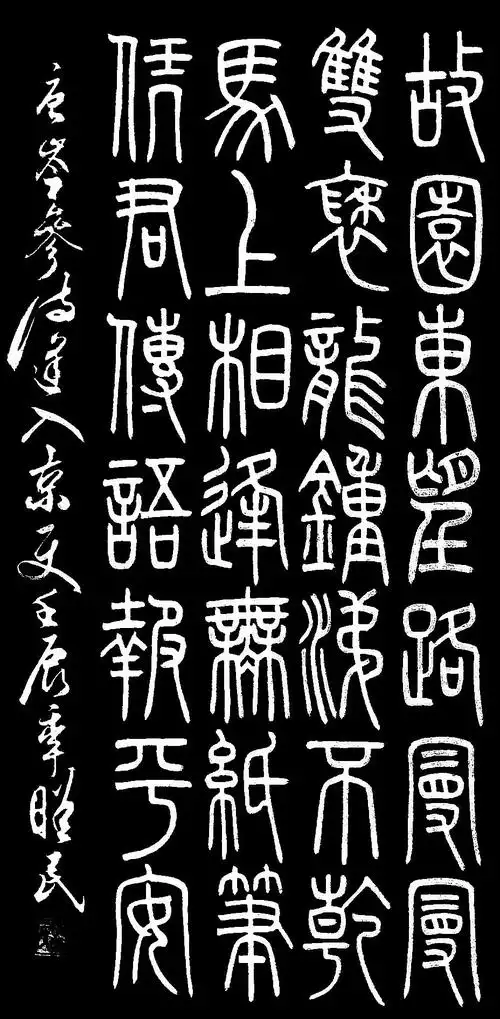 故園東望路曼曼
雙褎龍鍾涕不乾
馬上相逢無紙筆
凭君傳語報平安
唐岑參詩逢入京使壬辰年民